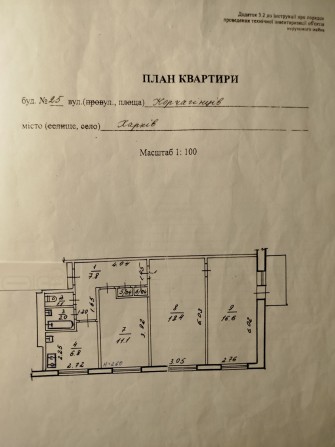 Додаток 5.2 до Інструкції про порядок
проведення технічної інвентаризації об'єктів
нерухомого майна
ПЛАН КВАРТИРИ
буд. №25 вул.(провул., площа) Корчагінців
місто (селище, село) Харків
Масштаб 1: 100
1
7.8
4.04
1.45
1.45
1.20
3
2.0
4
6.8
2.25
2.72
7
11.1
3.92
8
18.4
6.03
3.05
9
16.6
6.02
2.76